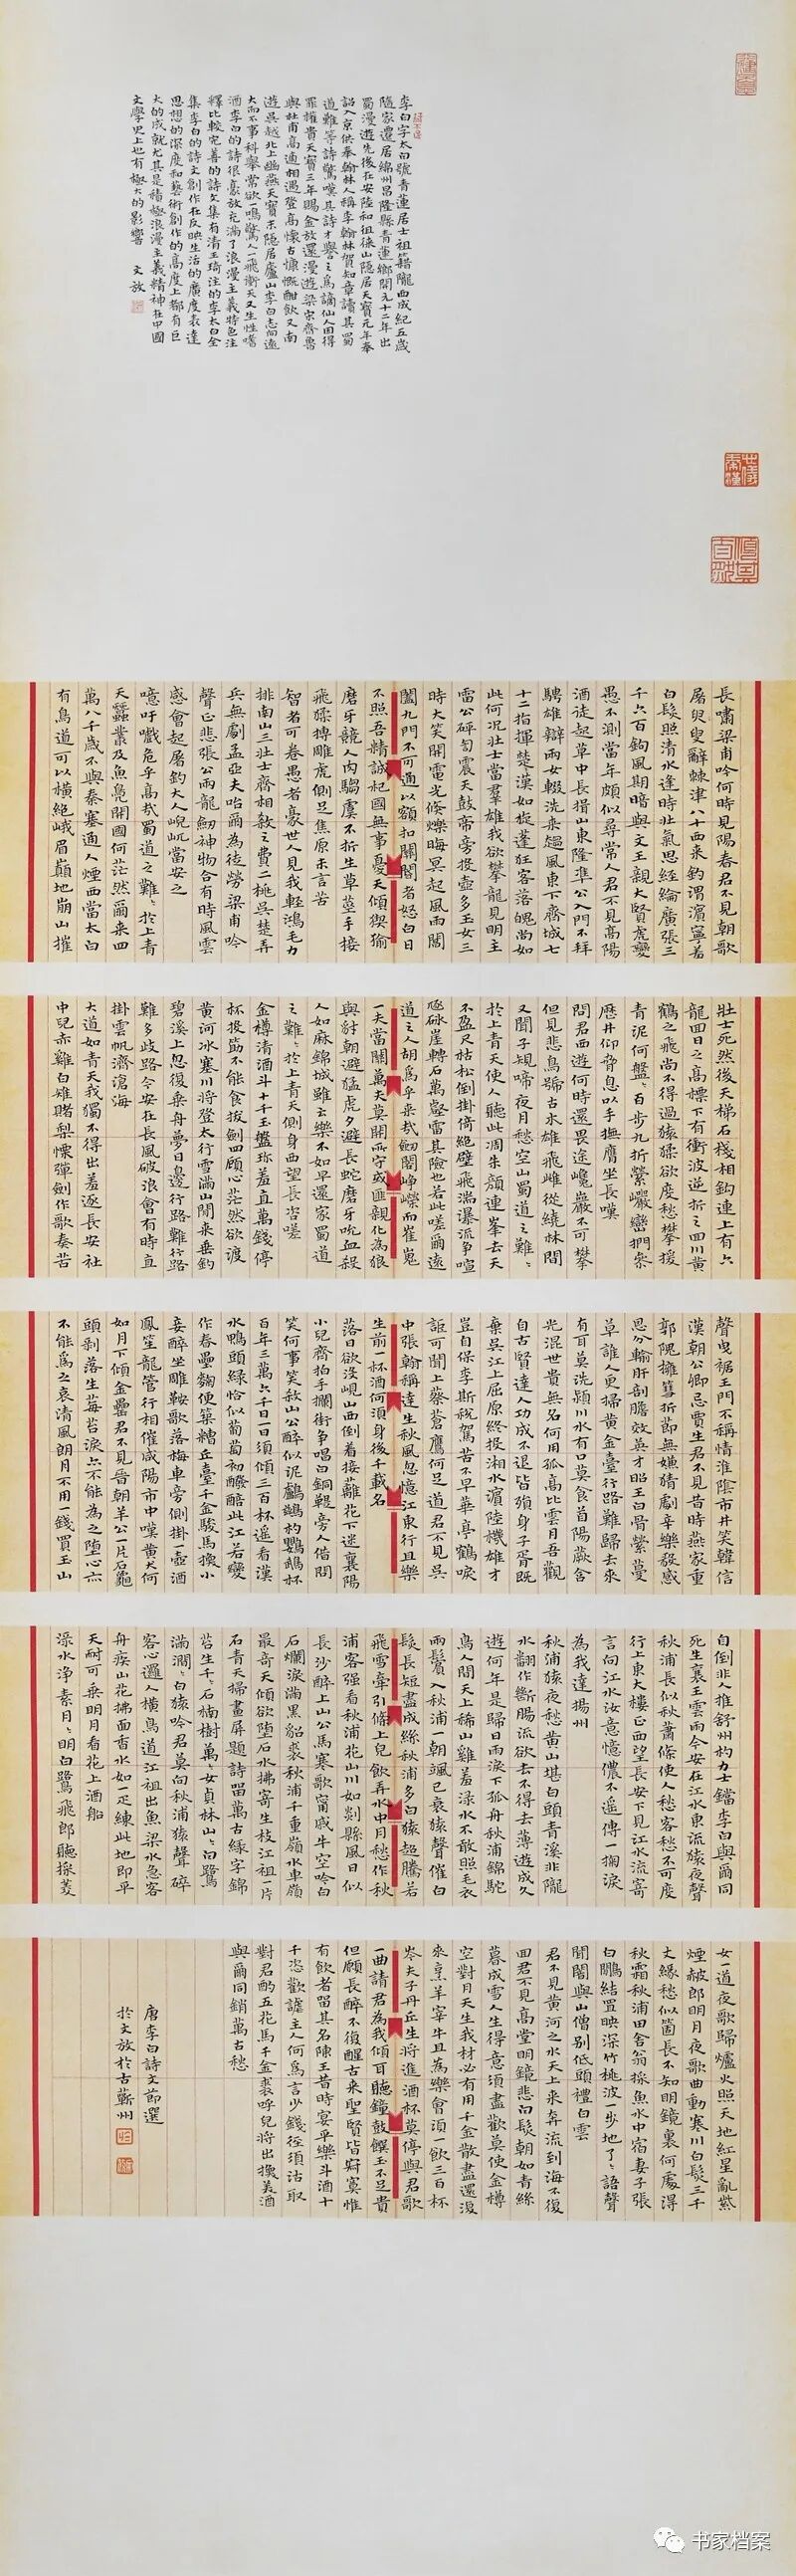 李白字太白號青蓮居士祖籍隴西成紀五歲
隨家遷居綿州昌隆縣青蓮鄉開元十二年出
蜀漫遊先後在安陸和徂徠山隱居天寶元年奉
詔入京供奉翰林人稱李翰林賀知章讀其蜀
道難等詩驚嘆其詩才譽之為謫仙人因得
罪權貴天寶三年賜金放還漫遊梁宋齊魯
與杜甫高適相遇登高懷古慷慨酣飲又南
遊吳越北上幽燕天寶末隱居廬山李白志向遠
大而不事科舉常欲一鳴驚人一飛衝天又生性嗜
酒李白的詩很豪放充滿了浪漫主義特色注
釋比較完善的詩文集有清王琦注的李太白全
集李白的詩文創作在反映生活的廣度表達
思想的深度和藝術創作的高度上都有巨
大的成就尤其是積極浪漫主義精神在中國
文學史上也有極大的影響 文放
長嘯梁甫吟何時見陽春君不見朝歌
屠叟辭棘津八十西來釣渭濱寧羞
白髮照清水逢時壯氣思經綸廣張三
千六百鉤風期暗與文王親大賢虎變
愚不測當年頗似尋常人君不見高陽
酒徒起草中長揖山東隆準公入門不拜
騁雄辯兩女輟洗來趨風東下齊城七
十二指揮楚漢如旋蓬狂客落魄尚如
此何況壯士當羣雄我欲攀龍見明主
雷公砰訇震天鼓帝旁投壺多玉女三
時大笑開電光倏爍晦冥起風雨閶
闔九門不可通以額扣關閽者怒白日
不照吾精誠杞國無事憂天傾猰貐
磨牙競人肉騶虞不折生草莖手接
飛猱搏雕虎側足焦原未言苦
智者可卷愚者豪世人見我輕鴻毛力
排南山三壯士齊相殺之費二桃吳楚弄
兵無劇孟亞夫咍爾為徒勞梁甫吟
聲正悲張公兩龍劍神物合有時風雲
感會起屠釣大人𡸣屼當安之
噫吁嚱危乎高哉蜀道之難難於上青
天蠶叢及魚鳧開國何茫然爾來四
萬八千歲不與秦塞通人煙西當太白
有鳥道可以橫絕峨眉巔地崩山摧
壯士死然後天梯石棧相鉤連上有六
龍回日之高標下有衝波逆折之回川黃
鶴之飛尚不得過猿猱欲度愁攀援
青泥何盤盤百步九折縈巖巒捫參
歷井仰脅息以手撫膺坐長嘆
問君西遊何時還畏途巉巖不可攀
但見悲鳥號古木雄飛雌從繞林間
又聞子規啼夜月愁空山蜀道之難難
於上青天使人聽此凋朱顏連峯去天
不盈尺枯松倒掛倚絕壁飛湍瀑流爭喧
豗砯崖轉石萬壑雷其險也若此嗟爾遠
道之人胡為乎來哉劍閣崢嶸而崔嵬
一夫當關萬夫莫開所守或匪親化為狼
與豺朝避猛虎夕避長蛇磨牙吮血殺
人如麻錦城雖云樂不如早還家蜀道
之難難於上青天側身西望長咨嗟
金樽清酒斗十千玉盤珍羞直萬錢停
杯投筯不能食拔劍四顧心茫然欲渡
黃河冰塞川將登太行雪滿山閒來垂釣
碧溪上忽復乘舟夢日邊行路難行路
難多歧路今安在長風破浪會有時直
掛雲帆濟滄海
大道如青天我獨不得出羞逐長安社
中兒赤雞白雉賭梨慄彈劍作歌奏苦
聲曳裾王門不稱情淮陰市井笑韓信
漢朝公卿忌賈生君不見昔時燕家重
郭隗擁篲折節無嫌猜劇辛樂毅感
恩分輸肝剖膽效英才昭王白骨縈蔓
草誰人更掃黃金臺行路難歸去來
有耳莫洗潁川水有口莫食首陽蕨含
光混世貴無名何用孤高比雲月吾觀
自古賢達人功成不退皆殞身子胥既
棄吳江上屈原終投湘水濱陸機雄才
豈自保李斯稅駕苦不早華亭鶴唳
詎可聞上蔡蒼鷹何足道君不見吳
中張翰稱達生秋風忽憶江東行且樂
生前一杯酒何須身後千載名
落日欲沒峴山西倒着接蘺花下迷襄陽
小兒齊拍手攔街爭唱白銅鞮旁人借問
笑何事笑殺山公醉似泥鸕鷀杓鸚鵡杯
百年三萬六千日一日須傾三百杯遥看漢
水鴨頭綠恰似葡萄初醱醅此江若變
作春壘麴便築糟丘臺千金駿馬換小
妾醉坐雕鞍歌落梅車旁側掛一壺酒
鳳笙龍管行相催咸陽市中嘆黃犬何
如月下傾金罍君不見晉朝羊公一片石龜
頭剥落生莓苔淚亦不能為之墮心亦
不能為之哀清風朗月不用一錢買玉山
自倒非人推舒州杓力士鐺李白與爾同
死生襄王雲雨今安在江水東流猿夜聲
秋浦長似秋蕭條使人愁客愁不可度
行上東大樓正西望長安下見江水流寄
言向江水汝意憶儂不遥傳一掬淚
為我達揚州
秋浦猿夜愁黃山堪白頭青溪非隴
水翻作斷腸流欲去不得去薄遊成久
遊何年是歸日雨淚下孤舟秋浦錦駝
鳥人間天上稀山雞羞淥水不敢照毛衣
兩鬢入秋浦一朝颯已衰猿聲催白
髮長短盡成絲秋浦多白猿超騰若
飛雪牽引條上兒飲弄水中月愁作秋
浦客强看秋浦花山川如剡縣風日似
長沙醉上山公馬寒歌甯戚牛空吟白
石爛淚滿黑貂裘秋浦千重嶺水車嶺
最奇天傾欲墮石水拂寄生枝江祖一片
石青天掃畫屏題詩留萬古綠字錦
苔生千千石楠樹萬萬女貞林山山白鷺
滿澗澗白猿吟君莫向秋浦猿聲碎
客心邏人橫鳥道江祖出魚梁水急客
舟疾山花拂面香水如一疋練此地即平
天耐可乘明月看花上酒船
淥水淨素月月明白鷺飛郎聽採菱
女一道夜歌歸爐火照天地紅星亂紫
煙赧郎明月夜歌曲動寒川白髮三千
丈緣愁似箇長不知明鏡裏何處得
秋霜秋浦田舍翁採魚水中宿妻子張
白鷴結罝映深竹桃波一步地了了語聲
聞闇與山僧別低頭禮白雲
君不見黃河之水天上來奔流到海不復
回君不見高堂明鏡悲白髮朝如青絲
暮成雪人生得意須盡歡莫使金樽
空對月天生我材必有用千金散盡還復
來烹羊宰牛且為樂會須一飲三百杯
岑夫子丹丘生將進酒杯莫停與君歌
一曲請君為我傾耳聽鐘鼓饌玉不足貴
但願長醉不復醒古來聖賢皆寂寞惟
有飲者留其名陳王昔時宴平樂斗酒十
千恣歡謔主人何為言少錢徑須沽取
對君酌五花馬千金裘呼兒將出換美酒
與爾同銷萬古愁
唐李白詩文節選
於文放於古蘄州
书家档案